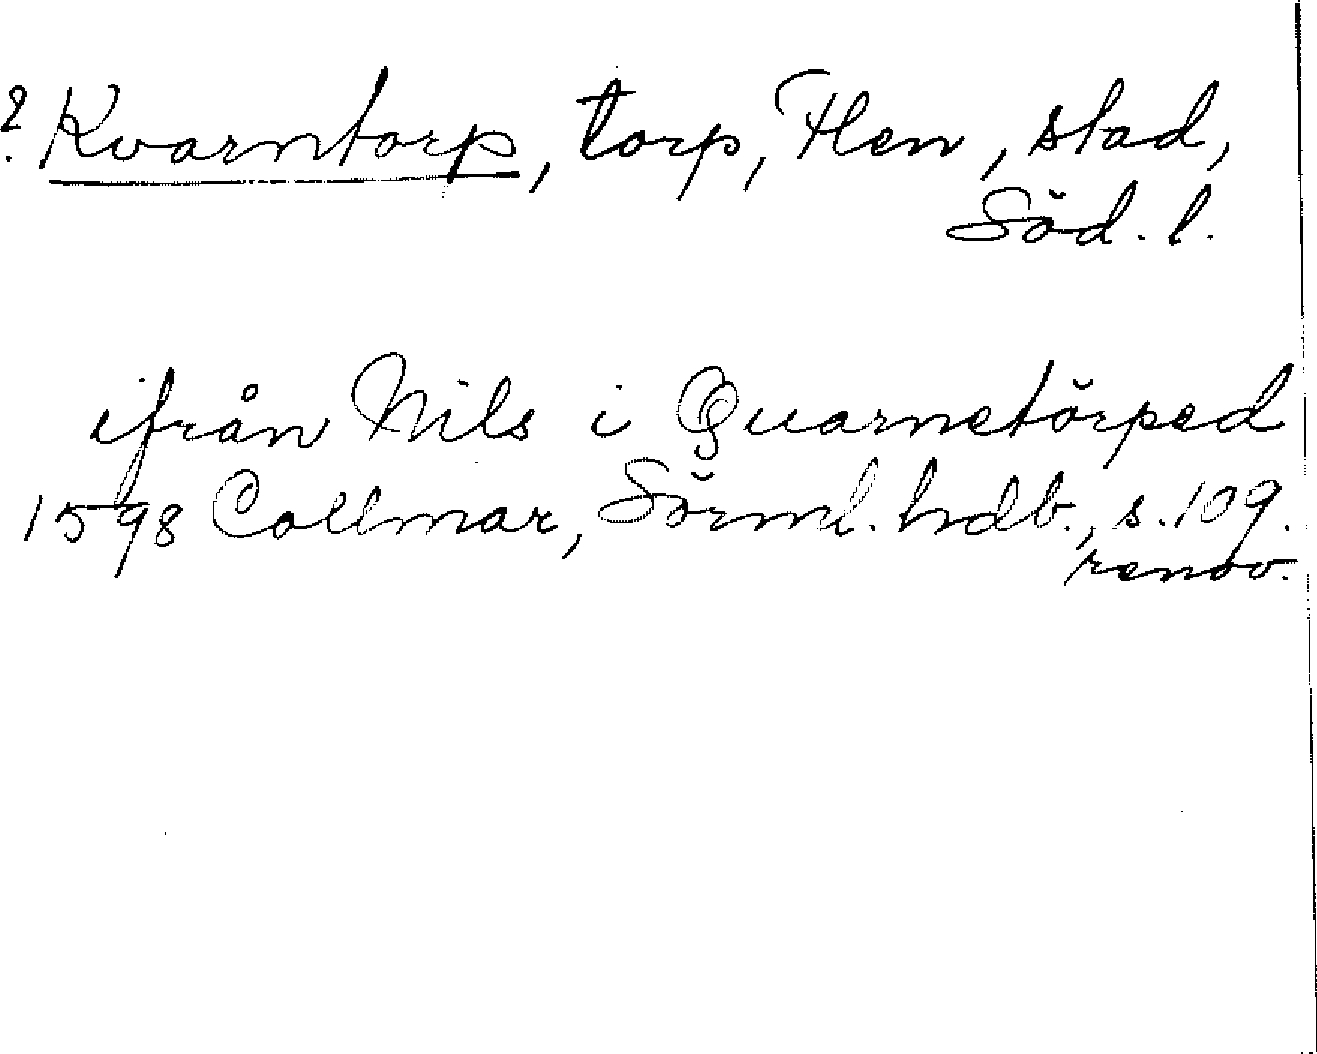 ? Kvarntorp, torp, Flen, stad,
Söd. l.
ifrån Nils i Quarnetörped
1598 Collmar, Sörml. hdb., s. 109.
renov.